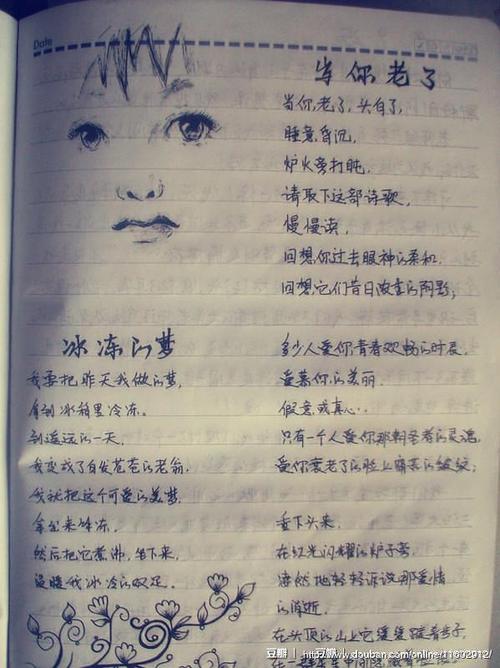 Date
当你老了
当你老了，头白了，
睡意昏沉，
炉火旁打盹，
请取下这部诗歌，
慢慢读，
回想你过去眼神的柔和，
回想它们昔日浓重的阴影；
多少人爱你青春欢畅的时辰，
爱慕你的美丽，
假意或真心，
只有一个人爱你那朝圣者的灵魂，
爱你衰老了的脸上痛苦的皱纹；
垂下头来，
在红光闪耀的炉子旁
凄然地轻轻诉说那爱情
的消逝，
在头顶的山上它缓缓踱着步子，
冰冻的梦
我要把昨天我做的梦，
拿到冰箱里冷冻。
到遥远的一天，
我变成了白发苍苍的老翁，
我就把这个可爱的美梦，
拿出来解冻，
然后把它煮沸，坐下来，
温暖我冰冷的双足。
豆瓣 | http://www.douban.com/online/11602912/